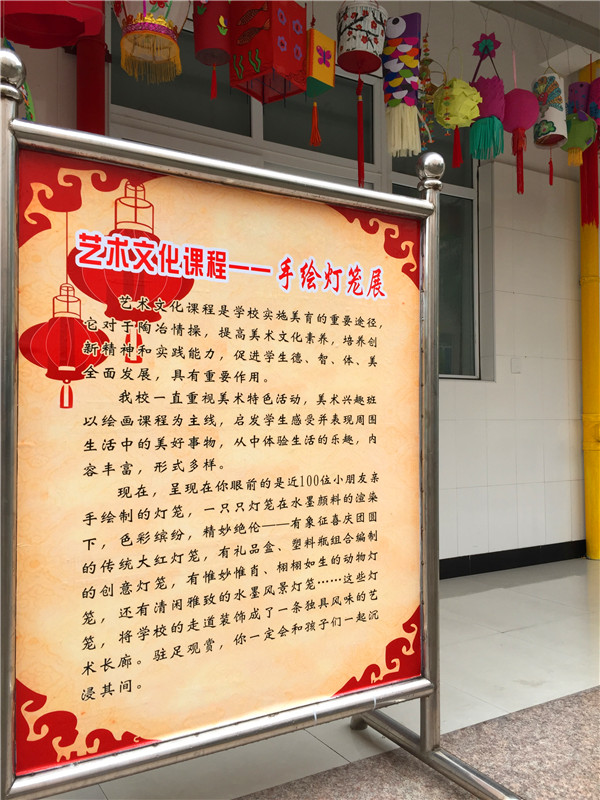 艺术文化课程——手绘灯笼展
艺术文化课程是学校实施美育的重要途径，
它对于陶冶情操，提高美术文化素养，培养创
新精神和实践能力，促进学生德、智、体、美
全面发展，具有重要作用。
我校一直重视美术特色活动，美术兴趣班
以绘画课程为主线，启发学生感受并表现周围
生活中的美好事物，从中体验生活的乐趣，内
容丰富，形式多样。
现在，呈现在你眼前的是近100位小朋友亲
手绘制的灯笼，一只只灯笼在水墨颜料的渲染
下，色彩缤纷，精妙绝伦——有象征喜庆团圆
的传统大红灯笼，有礼品盒、塑料瓶组合编制
的创意灯笼，有惟妙惟肖、栩栩如生的动物灯
笼，还有清闲雅致的水墨风景灯笼……这些灯
笼，将学校的走道装饰成了一条独具风味的艺
术长廊。驻足观赏，你一定会和孩子们一起沉
浸其间。